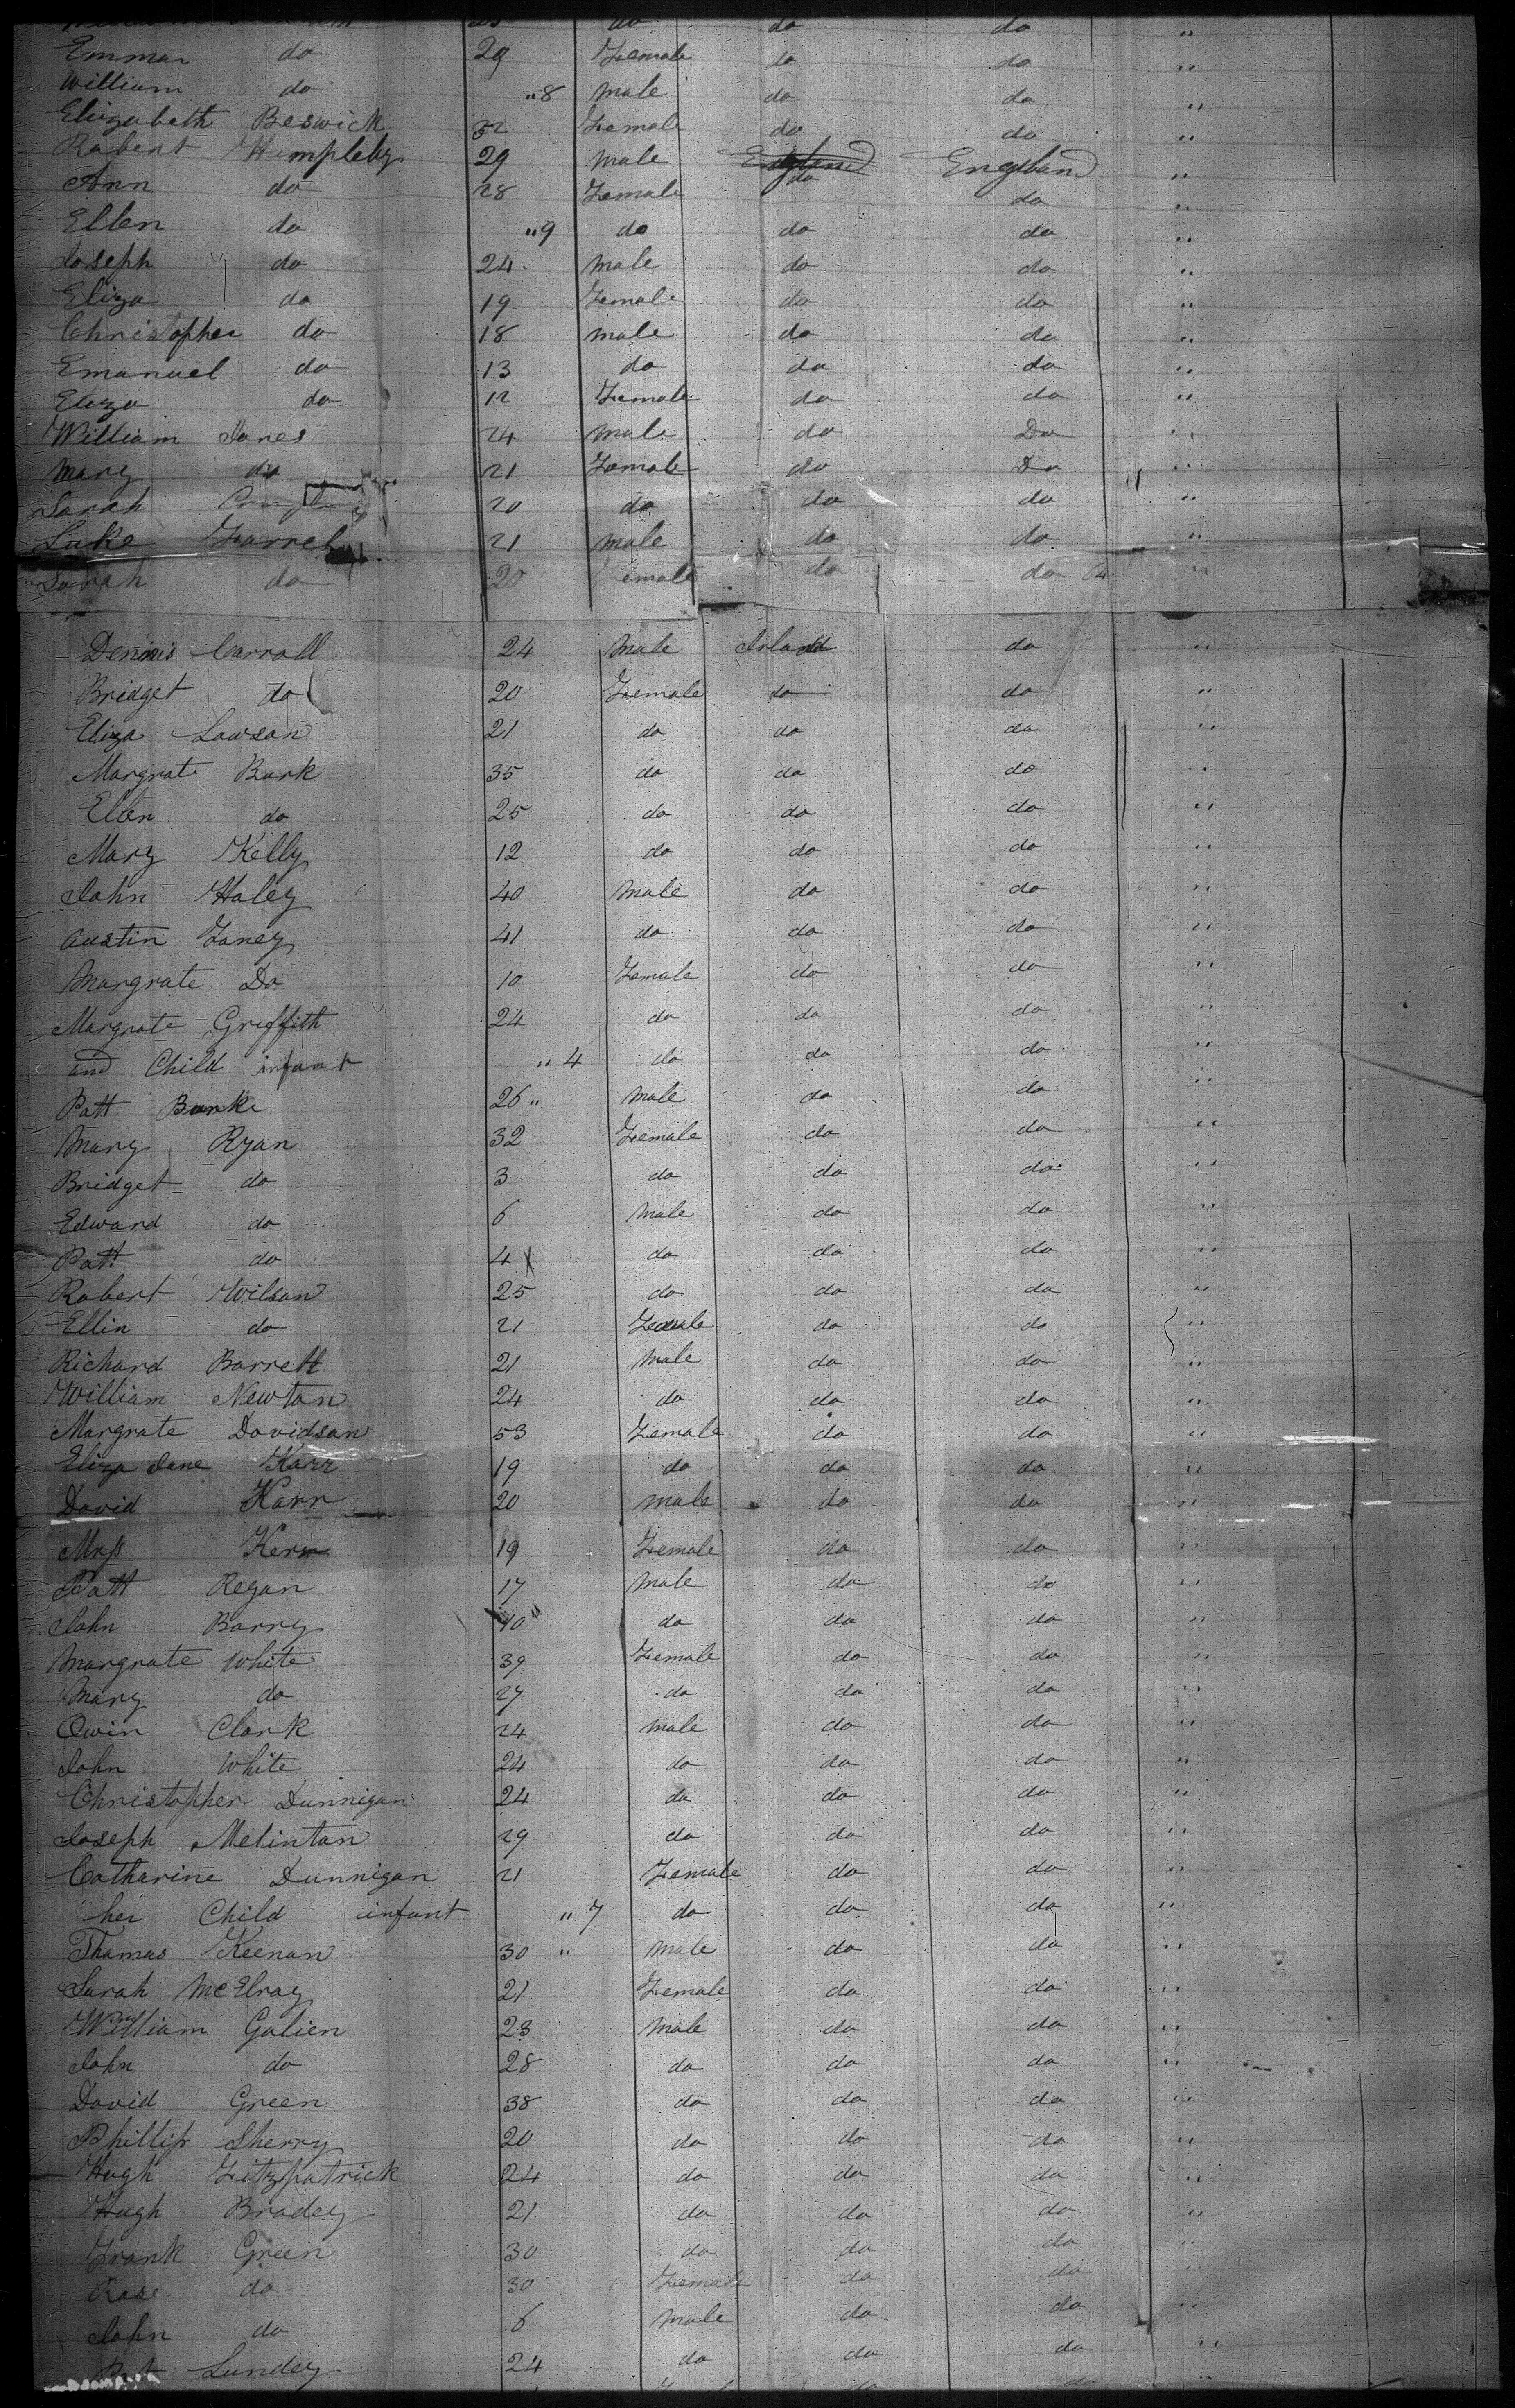 do do do "
Emma do 29 Female do do "
William do "8 Male do do "
Elizabeth Beswick 52 Female do do "
Robert Hempleby 29 Male England England "
Ann do 28 Female do do "
Ellen do "9 do do do "
Joseph do 24 Male do do "
Eliza do 19 Female do do "
Christopher do 18 Male do do "
Emanuel do 13 do do do "
Eliza do 12 Female do do "
William Jones 24 Male do Do "
Mary do 21 Female do Do "
Sarah 20 do do do "
Luke Farrel 21 Male do do "
Sarah do 20 Female do do "
Dennis Carroll 24 Male Irland do "
Bridget do 20 Female do do "
Eliza Lawson 21 do do do "
Margrate Burk 35 do do do "
Ellen do 25 do do do "
Mary Kelly 12 do do do "
John Haley 40 Male do do "
Austin Faney 41 do do do "
Margrate Do 10 Female do do "
Margrate Griffith 24 do do do "
and Child infant "4 do do do "
Patt Burke 26 " Male do do "
Mary Ryan 32 Female do do "
Bridget do 3 do do do "
Edward do 6 Male do do "
Patt do 4 do do do "
Robert Wilson 25 do do do "
Ellin do 21 Female do do "
Richard Barrett 21 Male do do "
William Newton 24 do do do "
Margrate Davidson 53 Female do do "
Eliza Jane Karr 19 do do do "
David Karr 20 Male do do "
Mrs Kerr 19 Female do do "
Patt Regan 17 Male do do "
John Barry 40 " do do do "
Margrate White 39 Female do do "
Mary do 27 do do do "
Owin Clark 24 Male do do "
John White 24 do do do "
Christopher Dunnigan 24 do do do "
Joseph Melintan 29 do do do "
Catharine Dunnigan 21 Female do do "
her Child infant "7 do do do "
Thomas Keenan 30 " Male do do "
Sarah McElroy 21 Female do do "
William Galien 23 Male do do "
John do 28 do do do "
David Green 38 do do do "
Phillip Sherry 20 do do do "
Hugh Fitzpatrick 24 do do do "
Hugh Bradey 21 do do do "
Frank Green 30 do do do "
Rose do 30 Female do do "
John do 6 Male do do "
Pat Lundey 24 do do do "